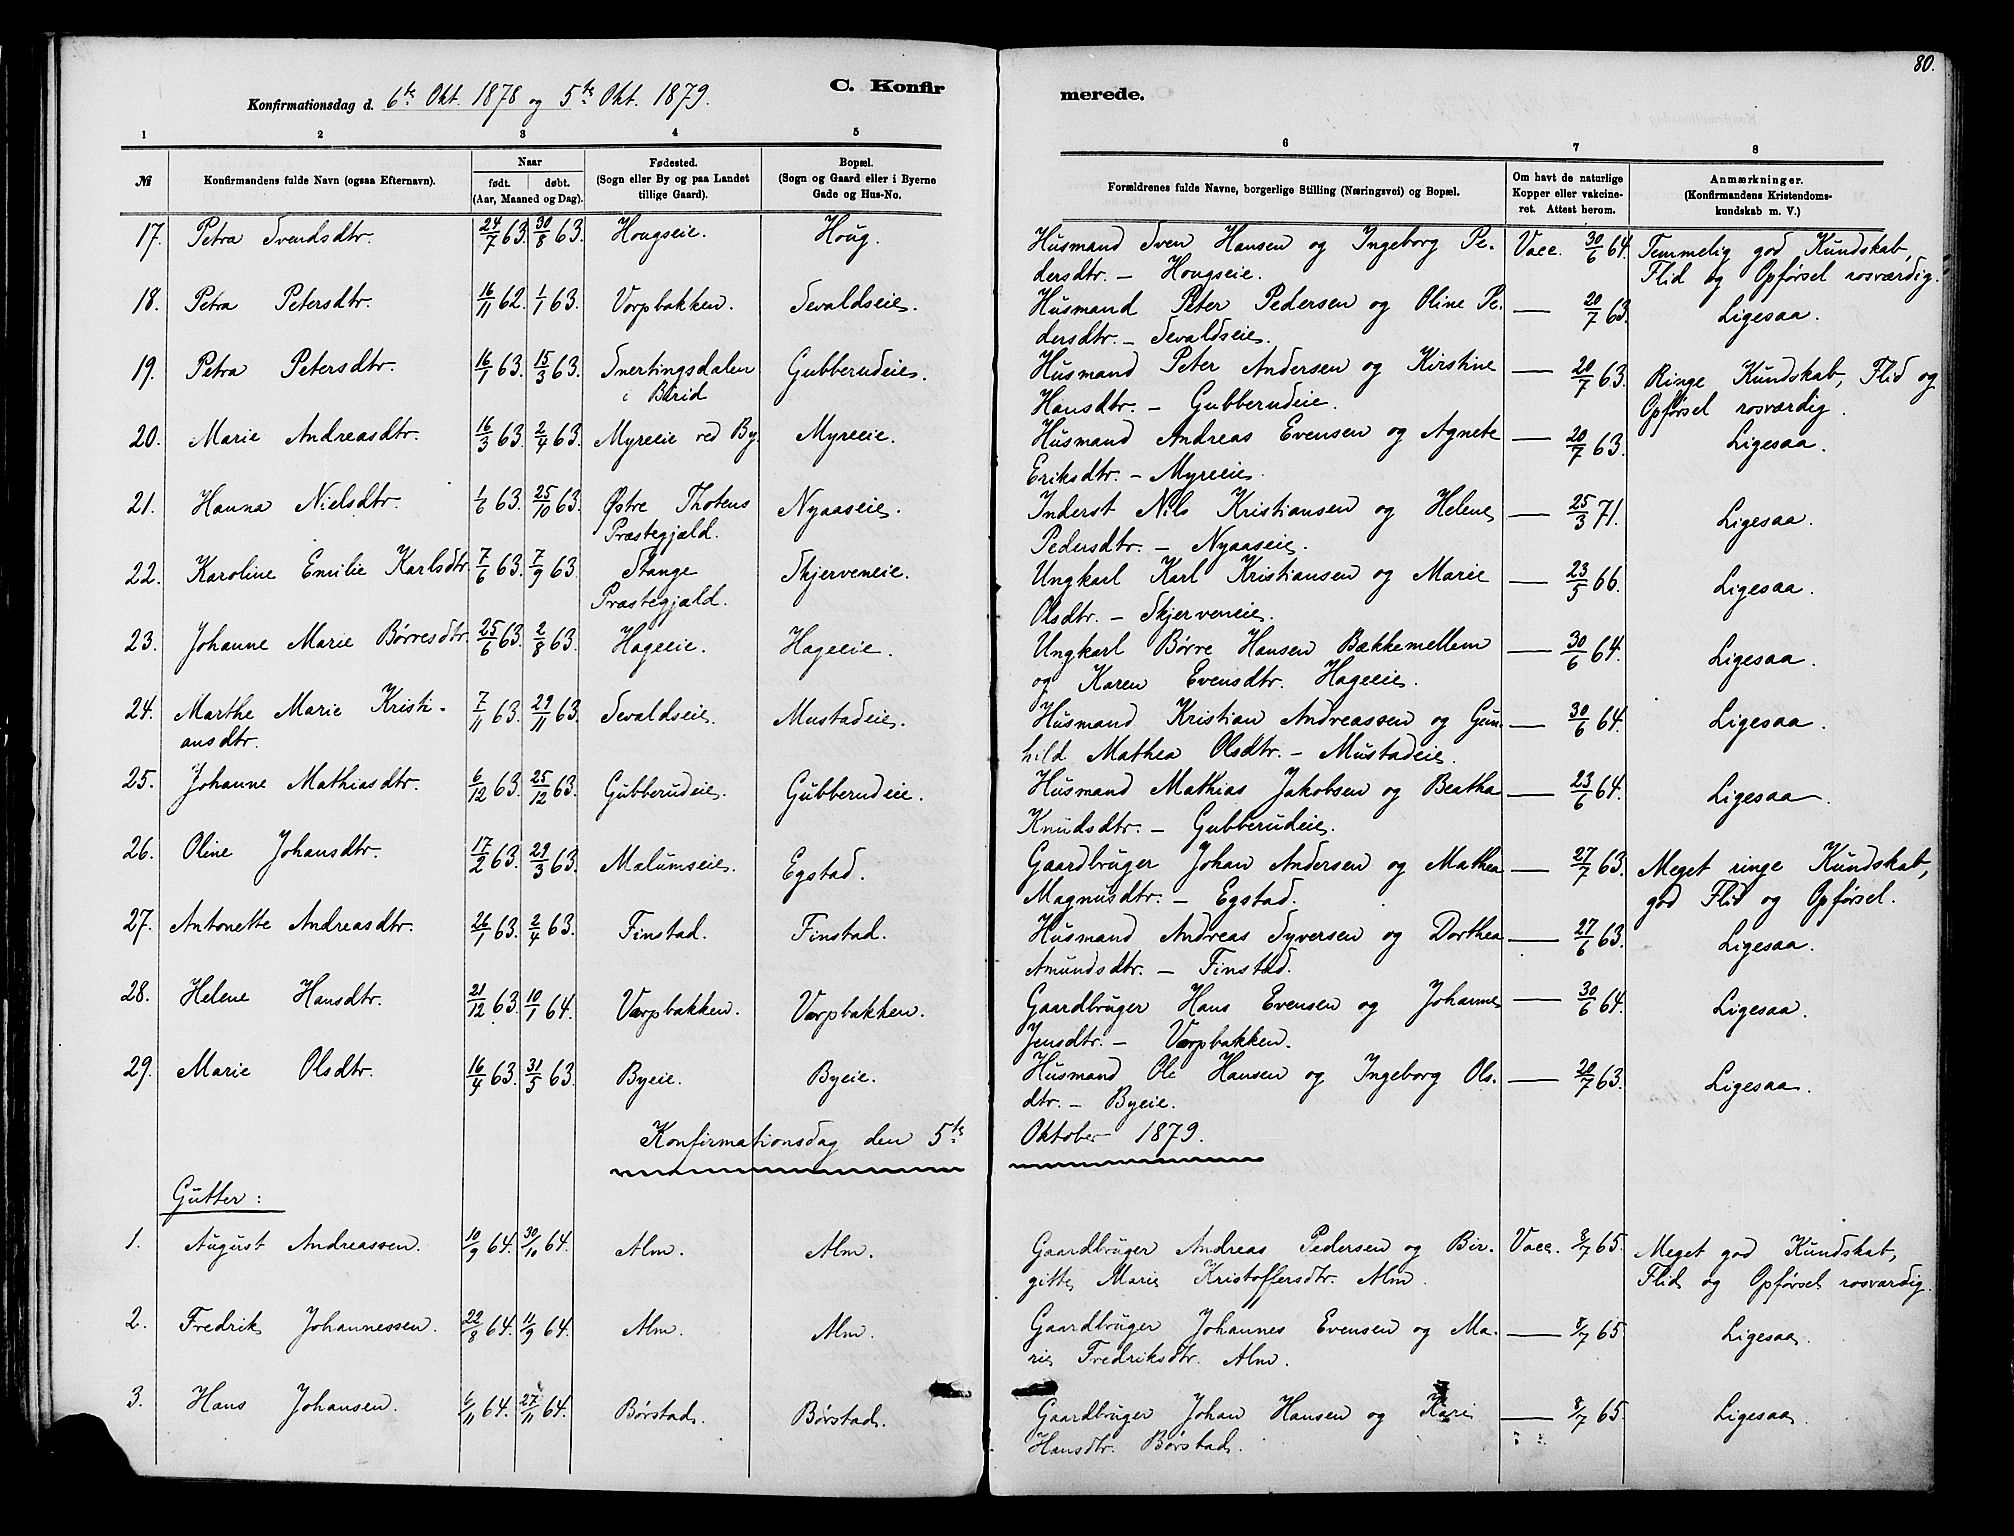 80.
Konfirmationsdag d. 6te Okt. 1878 og 5te Okt. 1879.
C. Konfirmerede.
1 2 3 4 5 6 7 8
№
Konfirmandens fulde Navn (ogsaa Efternavn).
Naar
født. døbt.
(Aar, Maaned og Dag).
Fødested.
(Sogn eller By og paa Landet
tillige Gaard).
Bopæl.
(Sogn og Gaard eller i Byerne
Gade og Hus-No.
Forældrenes fulde Navne, borgerlige Stilling (Næringsvei) og Bopæl.
Om havt de naturlige
Kopper eller vakcine-
ret. Attest herom.
Anmærkninger.
(Konfirmandens Kristendoms-
kundskab m. V.)
17. Petra Svendsdtr. 24/7 63. 30/8 63. Hougseie. Houg. Husmand Sven Hansen og Ingeborg Pe- Vacc. 30/6 64. Temmelig god Kundskab,
dersdtr. – Hougseie. Flid og Opførsel rosværdig.
18. Petra Petersdtr. 16/11 62. 1/1 63. Vorpbakken. Sevaldseie. Husmand Peter Pedersen og Oline Pe- — 20/7 63. Ligesaa.
dersdtr. – Sevaldseie.
19. Petra Petersdtr. 16/1 63. 15/3 63. Snertingsdalen Gubberudeie. Husmand Peter Andersen og Kirstine — 20/7 63. Ringe Kundskab, Flid og
i Birid Hansdtr. – Gubberudeie. Opførsel rosværdig.
20. Marie Andreasdtr. 16/3 63. 2/4 63. Myreeie ved By. Myreeie. Husmand Andreas Evensen og Agnete — 20/7 63. Ligesaa.
Eriksdtr. – Myreeie.
21. Hanna Nielsdtr. 1/6 63. 25/10 63. Østre Thotens Nyaaseie. Inderst Nils Kristiansen og Helene — 25/3 71. Ligesaa.
Præstegjæld. Pedersdtr. – Nyaaseie.
22. Karoline Emilie Karlsdtr. 7/6 63. 7/9 63. Stange Skjerveneie. Ungkarl Karl Kristiansen og Marie — 23/5 66. Ligesaa.
Præstegjæld. Olsdtr. – Skjerveneie.
23. Johanne Marie Børresdtr. 25/6 63. 2/8 63. Hageeie. Hageeie. Ungkarl Børre Hansen Bækkemellem — 30/6 64. Ligesaa.
og Karen Evensdtr. Hageeie.
24. Marthe Marie Kristi- 7/11 63. 29/11 63. Sevaldseie. Mustadeie. Husmand Kristian Andreassen og Gun- — 30/6 64. Ligesaa.
ansdtr. hild Mathea Olsdtr. – Mustadeie.
25. Johanne Mathiasdtr. 6/12 63. 25/12 63. Gubberudeie. Gubberudeie. Husmand Mathias Jakobsen og Beatha — 23/6 64. Ligesaa.
Knudsdtr. – Gubberudeie.
26. Oline Johansdtr. 17/2 63. 29/3 63. Malumseie. Egstad. Gaardbruger Johan Andersen og Mathea — 27/7 63. Meget ringe Kundskab,
Magnusdtr. – Egstad. god Flid og Opførsel.
27. Antonette Andreasdtr. 26/1 63. 2/4 63. Finstad. Finstad. Husmand Andreas Syversen og Dorthea — 27/6 63. Ligesaa.
Amundsdtr. – Finstad.
28. Helene Hansdtr. 21/12 63. 10/1 64. Vorpbakken. Vorpbakken. Gaardbruger Hans Evensen og Johanne — 30/6 64. Ligesaa.
Jensdtr. – Vorpbakken.
29. Marie Olsdtr. 16/4 63. 31/5 63. Byeie. Byeie. Husmand Ole Hansen og Ingeborg Ols- — 20/7 63. Ligesaa.
dtr. – Byeie.
Konfirmationsdag den 5te Oktober 1879.
Gutter:
1. August Andreassen. 10/9 64. 30/10 64. Alm. Alm. Gaardbruger Andreas Pedersen og Bir- Vacc. 8/7 65. Meget god Kundskab,
gitte Marie Kristoffersdtr. Alm. Flid og Opførsel rosværdig.
2. Fredrik Johannessen. 22/8 64. 11/9 64. Alm. Alm. Gaardbruger Johannes Evensen og Ma- — 8/7 65. Ligesaa.
rie Fredriksdtr. Alm.
3. Hans Johansen. 6/11 64. 27/11 64. Børstad. Børstad. Gaardbruger Johan Hansen og Kari — 8/7 65. Ligesaa.
Hansdtr. Børstad.